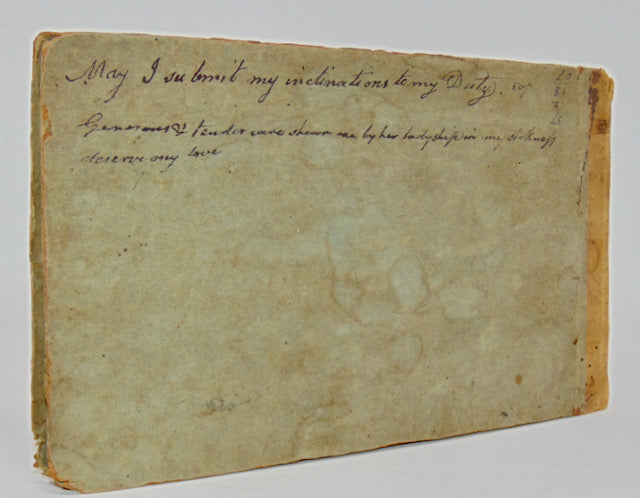 May I submit my inclinations to my Duty. 507
Generous & tender care shewn me by her ladyship in my sickness
deserve my love